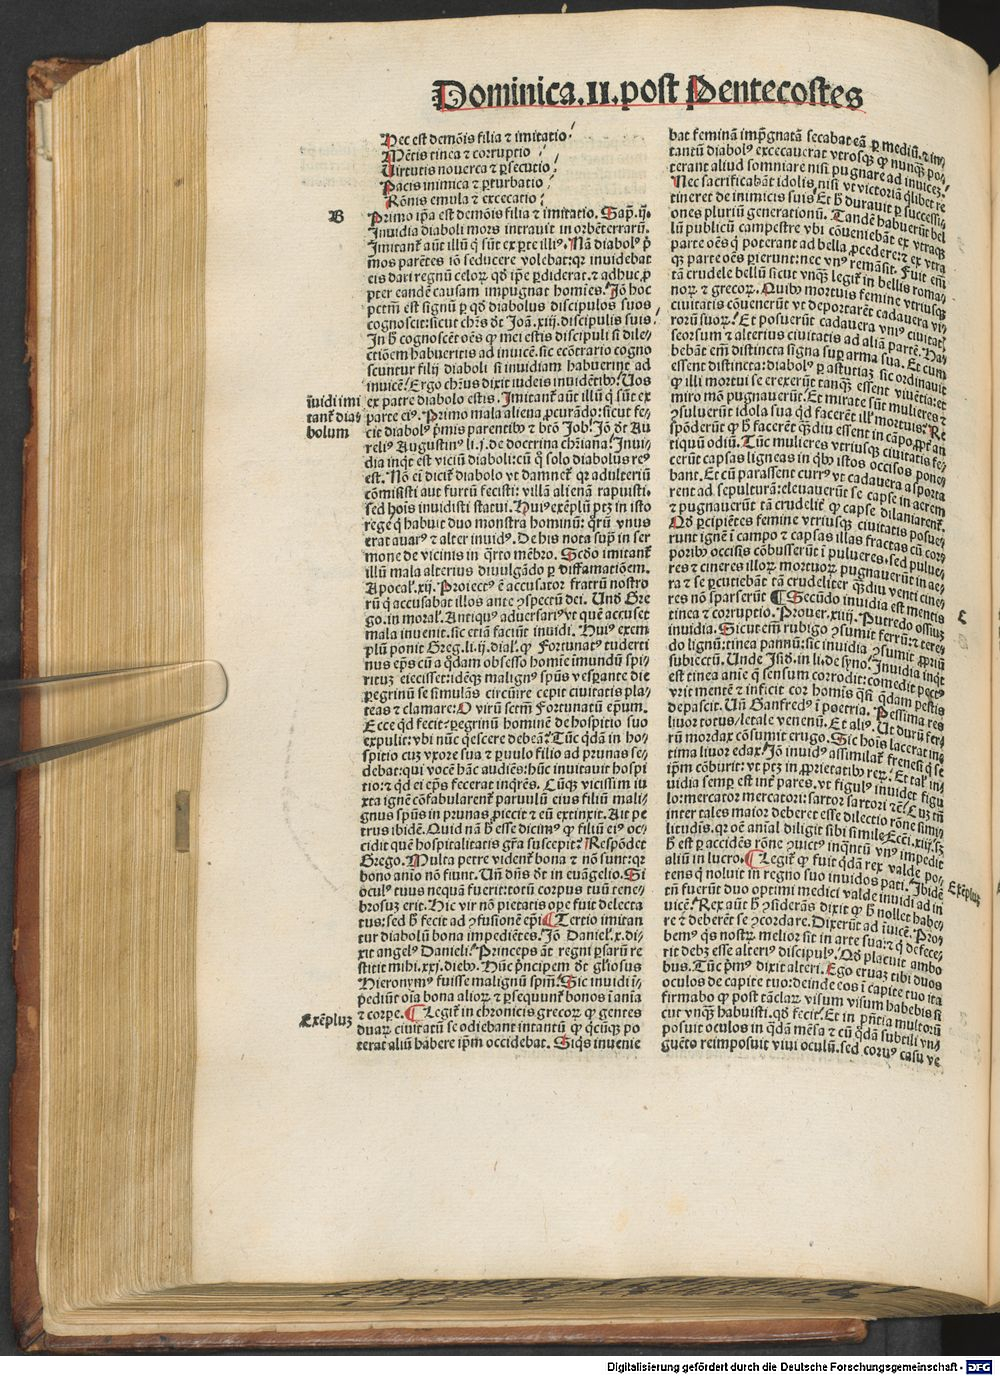 Dominica.II.post Pentecostes
Hec est demõis filia ⁊ imitatio
Mẽtis tinea ⁊ corruptio
Uirtutis nouerca ⁊ ꝑsecutio
Pacis inimica ⁊ ꝑturbatio
Rõnis emula ⁊ excecatio
B
Primo ip̃a est demõis filia ⁊ imitatio. Sap̃. ij.
Inuidia diaboli mors intrauit in orbẽ terrarũ.
Imitant᷑ aũt illũ q̃ sũt ex ꝑte illiꝰ. Nã diabolꝰ p̃
mos parẽtes iõ seducere volebat: qꝛ inuidebat
eis dari regnũ celoꝝ qd̃ ip̃e ꝑdiderat. ⁊ adhuc ꝓ
pter eandẽ causam impugnat homĩes. Iõ hoc
pctm̃ est signũ ꝑ qd̃ diabolus discipulos suos
cognoscit: sicut chr̃s dr̃t Joã. xiij. discipulis suis
In h̃ cognoscẽt oẽs ꝙ mei estis discipuli si dile-
ctiõem habueritis ad inuicẽ. sic ecõtrario cogno
scuntur filij diaboli si inuidiam habuerint ad
inuicẽ. Ergo chr̃us dixit iudeis inuidẽtibꝰ. Uos
ĩuidi imi
tant᷑ dia-
bolum
ex patre diabolo estis. Imitant᷑ aũt illũ q̃ sũt ex
parte eiꝰ. Primo mala aliena ꝓcurãdo: sicut fe-
cit diabolꝰ p̃mis parentibꝰ ⁊ btõ Job. Iõ dr̃t Au
reliꝰ Augustinꝰ li. j. de doctrina chr̃iana. Inui-
dia inq̃t est viciũ diaboli: cũ q̃ solo diabolus reꝰ
est. Nõ ei dicit᷑ diabolo vt damnet᷑ qꝛ adulteriũ
cõmisisti aut furtũ fecisti: villã alienã rapuisti.
sed hoĩs inuidisti statui. Huiꝰ exẽplũ ptꝫ in isto
rege q̃ habuit duo monstra hominũ: qꝛũ vnus
erat auarꝰ ⁊ alter inuidꝰ. De his nota supͣ in ser
mone de vicinis in q̃rto mẽbro. Scdõ imitant᷑
illũ mala alterius diuulgãdo ꝑ diffamatiõem.
Apocal̃. xij. Proiectꝰ ẽ accusator fratrũ nostro
rũ q̃ accusabat illos ante ꝯspectũ dei. Unõ Gre
go. in moral̃. Antiquꝰ aduersariꝰ vt que accuset
mala inuenit. sic etiã faciũt inuidi. Huiꝰ exem
plũ ponit Greg. li. ij. dial̃. ꝙ Fortunatꝰ tuderti
nus ep̃s cũ a q̃dam obsesso homĩe imundũ spi
ritũ eiecisset: idẽqꝫ malignꝰ spũs vesꝑante die
ꝑegrinũ se simulãs circũire cepit ciuitatis pla-
teas ⁊ clamare: O virũ sctm̃ Fortunatũ ep̃um.
Ecce qd̃ fecit: ꝑegrinũ hominẽ de hospitio suo
expulit: vbi nũc q̃escere debeã? Tũc q̃dã in ho-
spitio cuꝫ vxore sua ⁊ ꝑuulo filio ad prunas se-
debat: qui vocẽ hãc audiẽs: hũc inuitauit hospi
tio: ⁊ qd̃ ei ep̃s fecerat inq̃res. Cũqꝫ vicissim iu
xta ignẽ cõfabularent᷑ paruulũ eius filiũ mali-
gnus spũs in prunas ꝓiecit ⁊ eũ extinxit. Ait pe
trus ibidẽ. Quid nã h̃ esse dicimꝰ ꝙ filiũ eiꝰ oc-
cidit quẽ hospitalitatis gr̃a suscepit? Respõdet
Grego. Multa petre vident᷑ bona ⁊ nõ sunt: qꝛ
bono aĩo nõ fiunt. Uñ dñs dr̃t in euãgelio. Si
oculꝰ tuus nequã fuerit: totũ corpus tuũ tene-
brosuꝫ erit. Hic vir nõ pietatis oꝑe fuit delecta
tus: sed h̃ fecit ad ꝯfusionẽ ep̃i. Tertio imitan
tur diabolũ bona impediẽtes. Iõ Daniel̃. x. di-
xit angelꝰ Danieli. Princeps aũt regni ꝑsarũ re
stitit mihi. xxj. diebꝰ. Hũc p̃ncipem dr̃t gl̃iosus
Hieronymꝰ fuisse malignũ spm̃. Sic inuidi ĩ-
pediũt oĩa bona alioꝝ ⁊ ꝑsequunt᷑ bonos ĩ aĩa
⁊ corꝑe.
Exẽpluꝫ
Legit᷑ in chronicis grecoꝝ ꝙ gentes
duaꝝ ciuitatũ se odiebant intantũ ꝙ q̃cũqꝫ po
terat aliũ habere ip̃m occidebat. Siq̃s inuenie
bat feminã imp̃gnatã secabat eã ꝑ mediũ. ⁊ in-
tantũ diabolꝰ excecauerat vtrosqꝫ ꝙ nunqꝫ po-
terant aliud somniare nisi pugnare ad inuicẽ.
Nec sacrificabãt idolis nisi vt victoriã q̃libet re
tineret de inimicis suis. Et h̃ durauit ꝑ successi-
ones pluriũ generationũ. Tandẽ habuerũt bel
lũ publicũ campestre vbi cõueniebãt ex vtraqꝫ
parte oẽs q̃ poterant ad bella ꝓcedere: ⁊ ex vtra
qꝫ parte oẽs ꝑierunt: nec vnꝰ remãsit. Fuit em̃
tã crudele bellũ sicut vnqꝫ legit᷑ in bellis roma-
noꝝ ⁊ grecoꝝ. Quibꝰ mortuis femine vtriusqꝫ
ciuitatis cõuenerũt vt deportarẽt cadauera vi-
rorũ suoꝝ. Et posuerũt cadauera vniꝰ ciuitat᷑
seorsum ⁊ alterius ciuitatis ad aliã partẽ. Ha-
bebãt em̃ distincta signa suꝑ arma sua. Et cum
essent distincta: diabolꝰ ꝑ astutiaꝫ sic ordinauit
ꝙ illi mortui se erexerũt tanqꝫ essent viuẽtia: et
miro mõ pugnauerũt. Et mirate sũt mulieres ⁊
ꝯsuluerũt idola sua qd̃ facerẽt ill̃ mortuis. Re
spõderũt ꝙ h̃ facerẽt q̃diu essent in cãpo ꝓpt̃ an
tiquũ odiũ. Tũc mulieres vtriusqꝫ ciuitatis fe-
cerũt capsas ligneas in q̃bꝰ istos occisos pone-
bant. Et cũ parassent currꝰ vt cadauera asporta
rent ad sepulturã: eleuauerũt se capse in aerem
⁊ pugnauerũt tã crudelit᷑ ꝙ capse dilaniarent᷑.
Qd̃ ꝑcipiẽtes femine vtriusqꝫ ciuitatis posue-
runt ignẽ ĩ campo ⁊ capsas illas fractas cũ cor-
poribꝰ occisis cõbusserũt ĩ pulueres. sed pulue-
res ⁊ cineres illoꝝ mortuoꝝ pugnauerũt in ae-
ra ⁊ se ꝑcutiebãt tã crudeliter q̃diu venti cine-
res nõ sparserũt
C
Secũdo inuidia est mentis
tinea ⁊ corruptio. Prouer. xiiij. Putredo ossiuꝫ
inuidia. Sicut em̃ rubigo ꝯsumit ferrũ: ⁊ tere-
do lignũ: tinea pannũ: sic inuidia ꝯsumit ꝓpriũ
subiectũ. Unde Isid. in li. de syno. Inuidia inq̃t
est tinea anĩe q̃ sensum corrodit: comedit pectꝰ
vrit mentẽ ⁊ inficit cor homĩs q̃si q̃dam pestis
depascit. Uñ Ganfredꝰ ĩ poetria. Pessima res
liuor totus/ letale venenũ. Et aliꝰ. Ut durũ fer-
rũ mordax cõsumit erugo. Sic hoĩs lacerat in-
tima liuor edax. Iõ inuidꝰ assimilat᷑ frenesi q̃ se
ip̃m cõburit: vt ptꝫ in ꝓprietatibꝰ reꝝ. Et tal̃ in-
uidia semꝑ est int᷑ pares. vt figulꝰ inuidet figu
lo: mercator mercatori: sartor sartori ⁊c̃. Cuꝫ tñ
inter tales maior deberet esse dilectio rõne simi-
litudĩs. qꝛ oẽ aĩal diligit sibi simile Ecc̃i. xiij. sꝫ
h̃ est ꝑ accidẽs rõne ꝯuictꝰ inq̃ntũ vnꝰ impedit
aliũ in lucro.
Exẽpluꝫ
Legit᷑ ꝙ fuit q̃dã rex valde po-
tens q̃ noluit in regno suo inuidos pati. Ibidẽ
tñ fuerũt duo optimi medici valde inuidi ad in
uicẽ. Rex aũt h̃ ꝯsiderãs dixit ꝙ h̃ nollet habe-
re ⁊ deberẽt se ꝯcordare. Dixerũt ad ĩuicẽ. Pro-
bemꝰ q̃s nostrꝝ melior sit in arte sua: ⁊ q̃ defece-
rit debꝫ esse alteriꝰ discipulꝰ. Qd̃ placuit ambo
bus. Tũc p̃mꝰ dixit alteri. Ego eruaꝫ tibi duos
oculos de capite tuo: deinde eos ĩ capite tuo ita
firmabo ꝙ post tãclaꝝ visum visum habebis si
cut vnqꝫ habuisti. qd̃ fecit. Et in p̃ntia multorũ
posuit oculos in q̃dã mẽsa ⁊ cũ q̃dã subtili vn-
guẽto reimposuit viui oculũ. sed coruꝰ casu ve
Digitalisierung gefördert durch die Deutsche Forschungsgemeinschaft - DFG